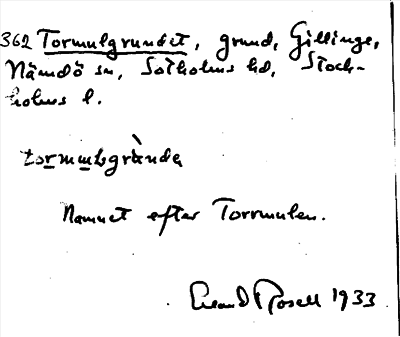 362 Tormulgrundet, grund, Gillinge,
Nämdö sn, Sotholms hd, Stock-
holms l.
tormulsgrùndə
Namnet efter Torrmulen.
Erland Rosell 1933